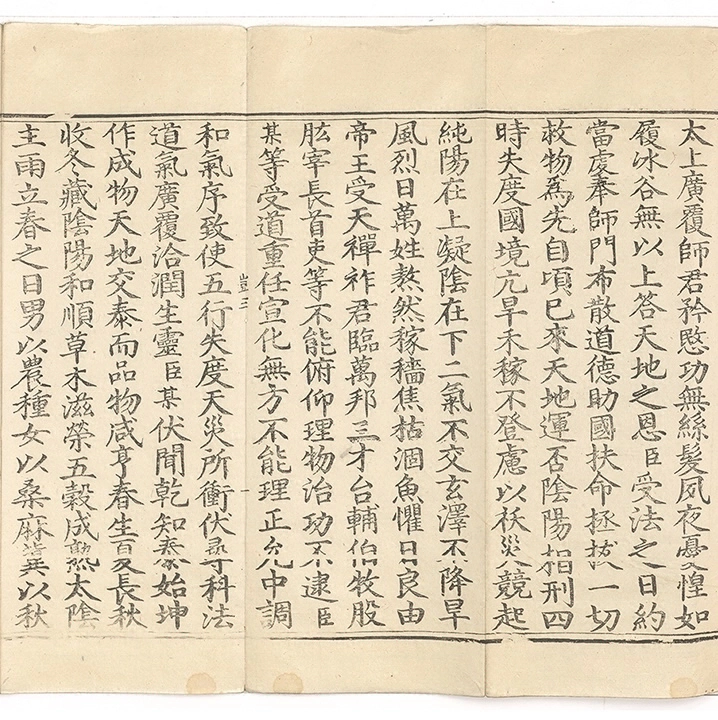 太上廣覆師君矜愍功無絲髮夙夜憂惶如
履冰谷無以上答天地之恩臣受法之日約
當處奉師門布散道德助國扶命拯拔一切
救物爲先自頃已來天地運否陰陽相刑四
時失度國境亢旱禾稼不登慮以祅災競起
純陽在上凝陰在下二氣不交玄澤不降旱
風烈日萬姓熬然稼穡焦枯涸魚懼日良由
帝王受天禪祚君臨萬邦三才台輔伯牧股
肱宰長首吏等不能俯仰理物治功不逮臣
某等受道重任宣化無方不能理正允中調
豈三
和氣序致使五行失度天災所衝伏尋科法
道氣廣覆洽潤生靈臣某伏聞乾知泰始坤
作成物天地交泰而品物咸亨春生夏長秋
收冬藏陰陽和順草木滋榮五穀成熟太陰
主雨立春之日男以農種女以桑麻冀以秋